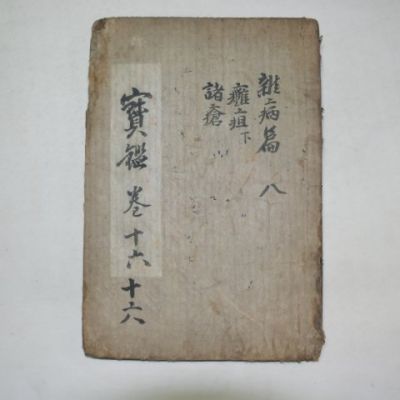 雜病篇 八
癰疽下
諸瘡
寶鑑 卷十六 十六